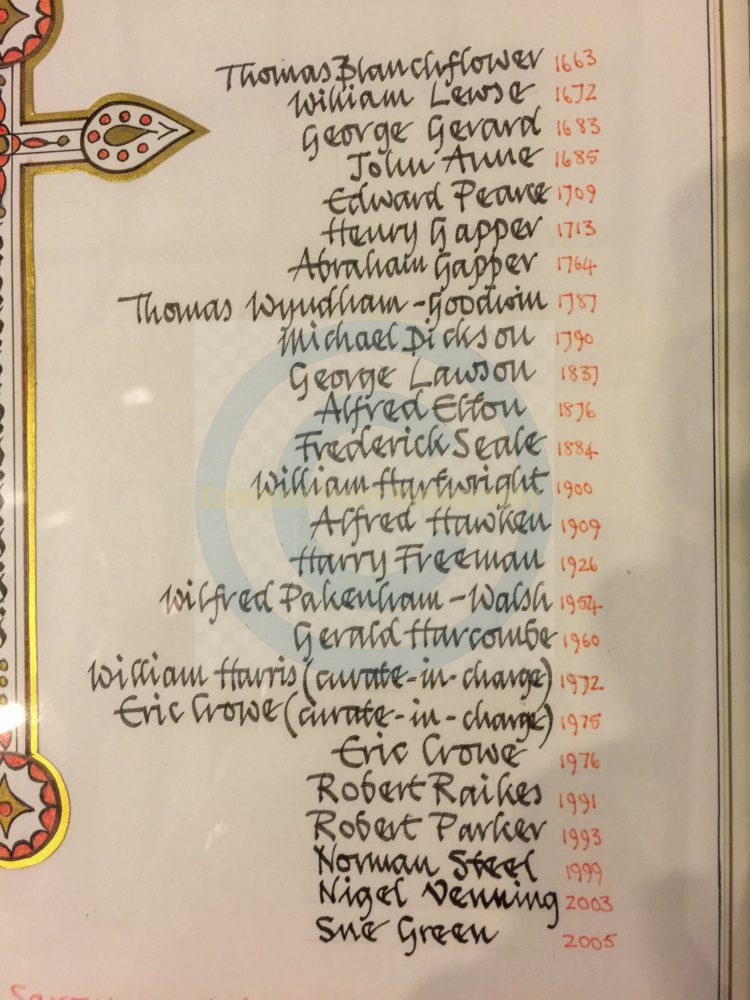 Thomas Blanchflower 1663
William Lewse 1672
George Gerard 1683
John Anne 1685
Edward Pearce 1709
Henry Gapper 1713
Abraham Gapper 1764
Thomas Wyndham-Goodwin 1787
Michael Dickson 1790
George Lawson 1837
Alfred Elton 1876
Frederick Seale 1884
William Hartwright 1900
Alfred Hawken 1909
Harry Freeman 1926
Wilfred Pakenham-Walsh 1954
Gerald Harcombe 1960
William Harris (curate-in-charge) 1972
Eric Crowe (curate-in-charge) 1975
Eric Crowe 1976
Robert Raikes 1991
Robert Parker 1993
Norman Steel 1999
Nigel Venning 2003
Sue Green 2005